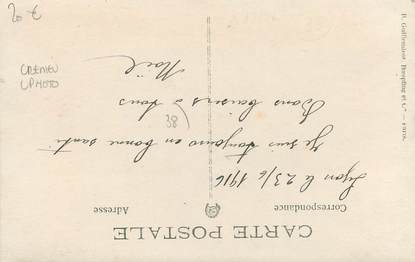 CARTE POSTALE
Correspondance
Adresse
Lyon le 23/6 1916
Je suis toujours en bonne santé
Bons baisers à tous
Noël
38
20 €
R. Guilleminot, Bœspflug et Cie — Paris.